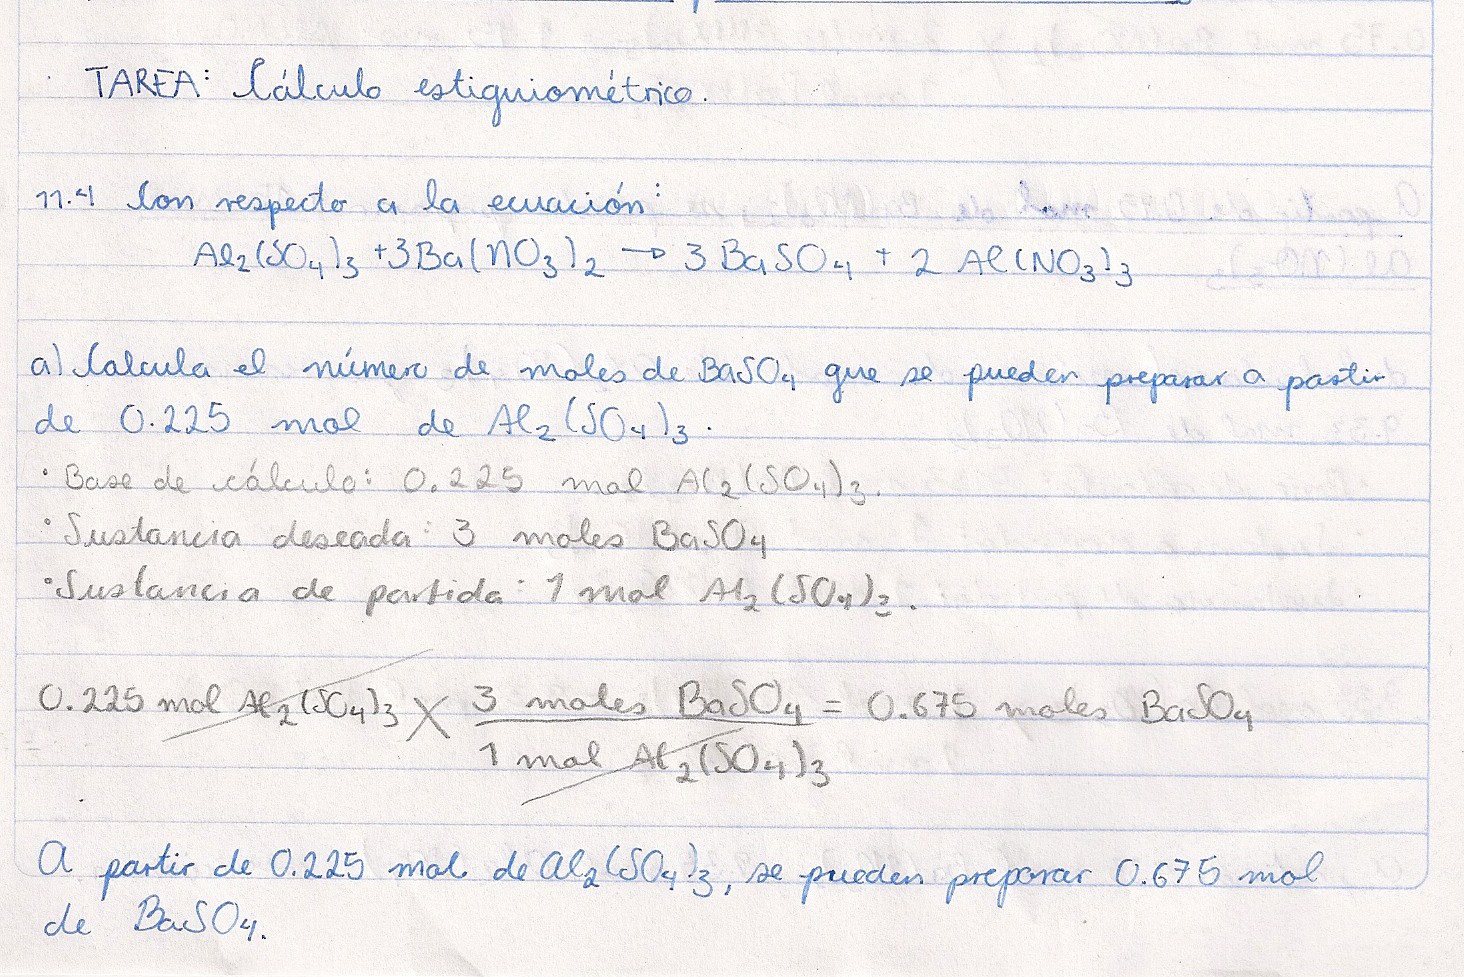 TAREA: Cálculo estiquiométrico.
11.4 Con respecto a la ecuación:
Al₂(SO₄)₃ + 3Ba(NO₃)₂ → 3 BaSO₄ + 2 Al(NO₃)₃
a) Calcula el número de moles de BaSO₄ que se pueden preparar a partir
de 0.225 mol de Al₂(SO₄)₃.
· Base de cálculo: 0.225 mol Al₂(SO₄)₃.
· Sustancia deseada: 3 moles BaSO₄
· Sustancia de partida: 1 mol Al₂(SO₄)₃.
0.225 mol Al₂(SO₄)₃ X 3 moles BaSO₄ = 0.675 moles BaSO₄
1 mol Al₂(SO₄)₃
A partir de 0.225 mol de Al₂(SO₄)₃, se pueden preparar 0.675 mol
de BaSO₄.